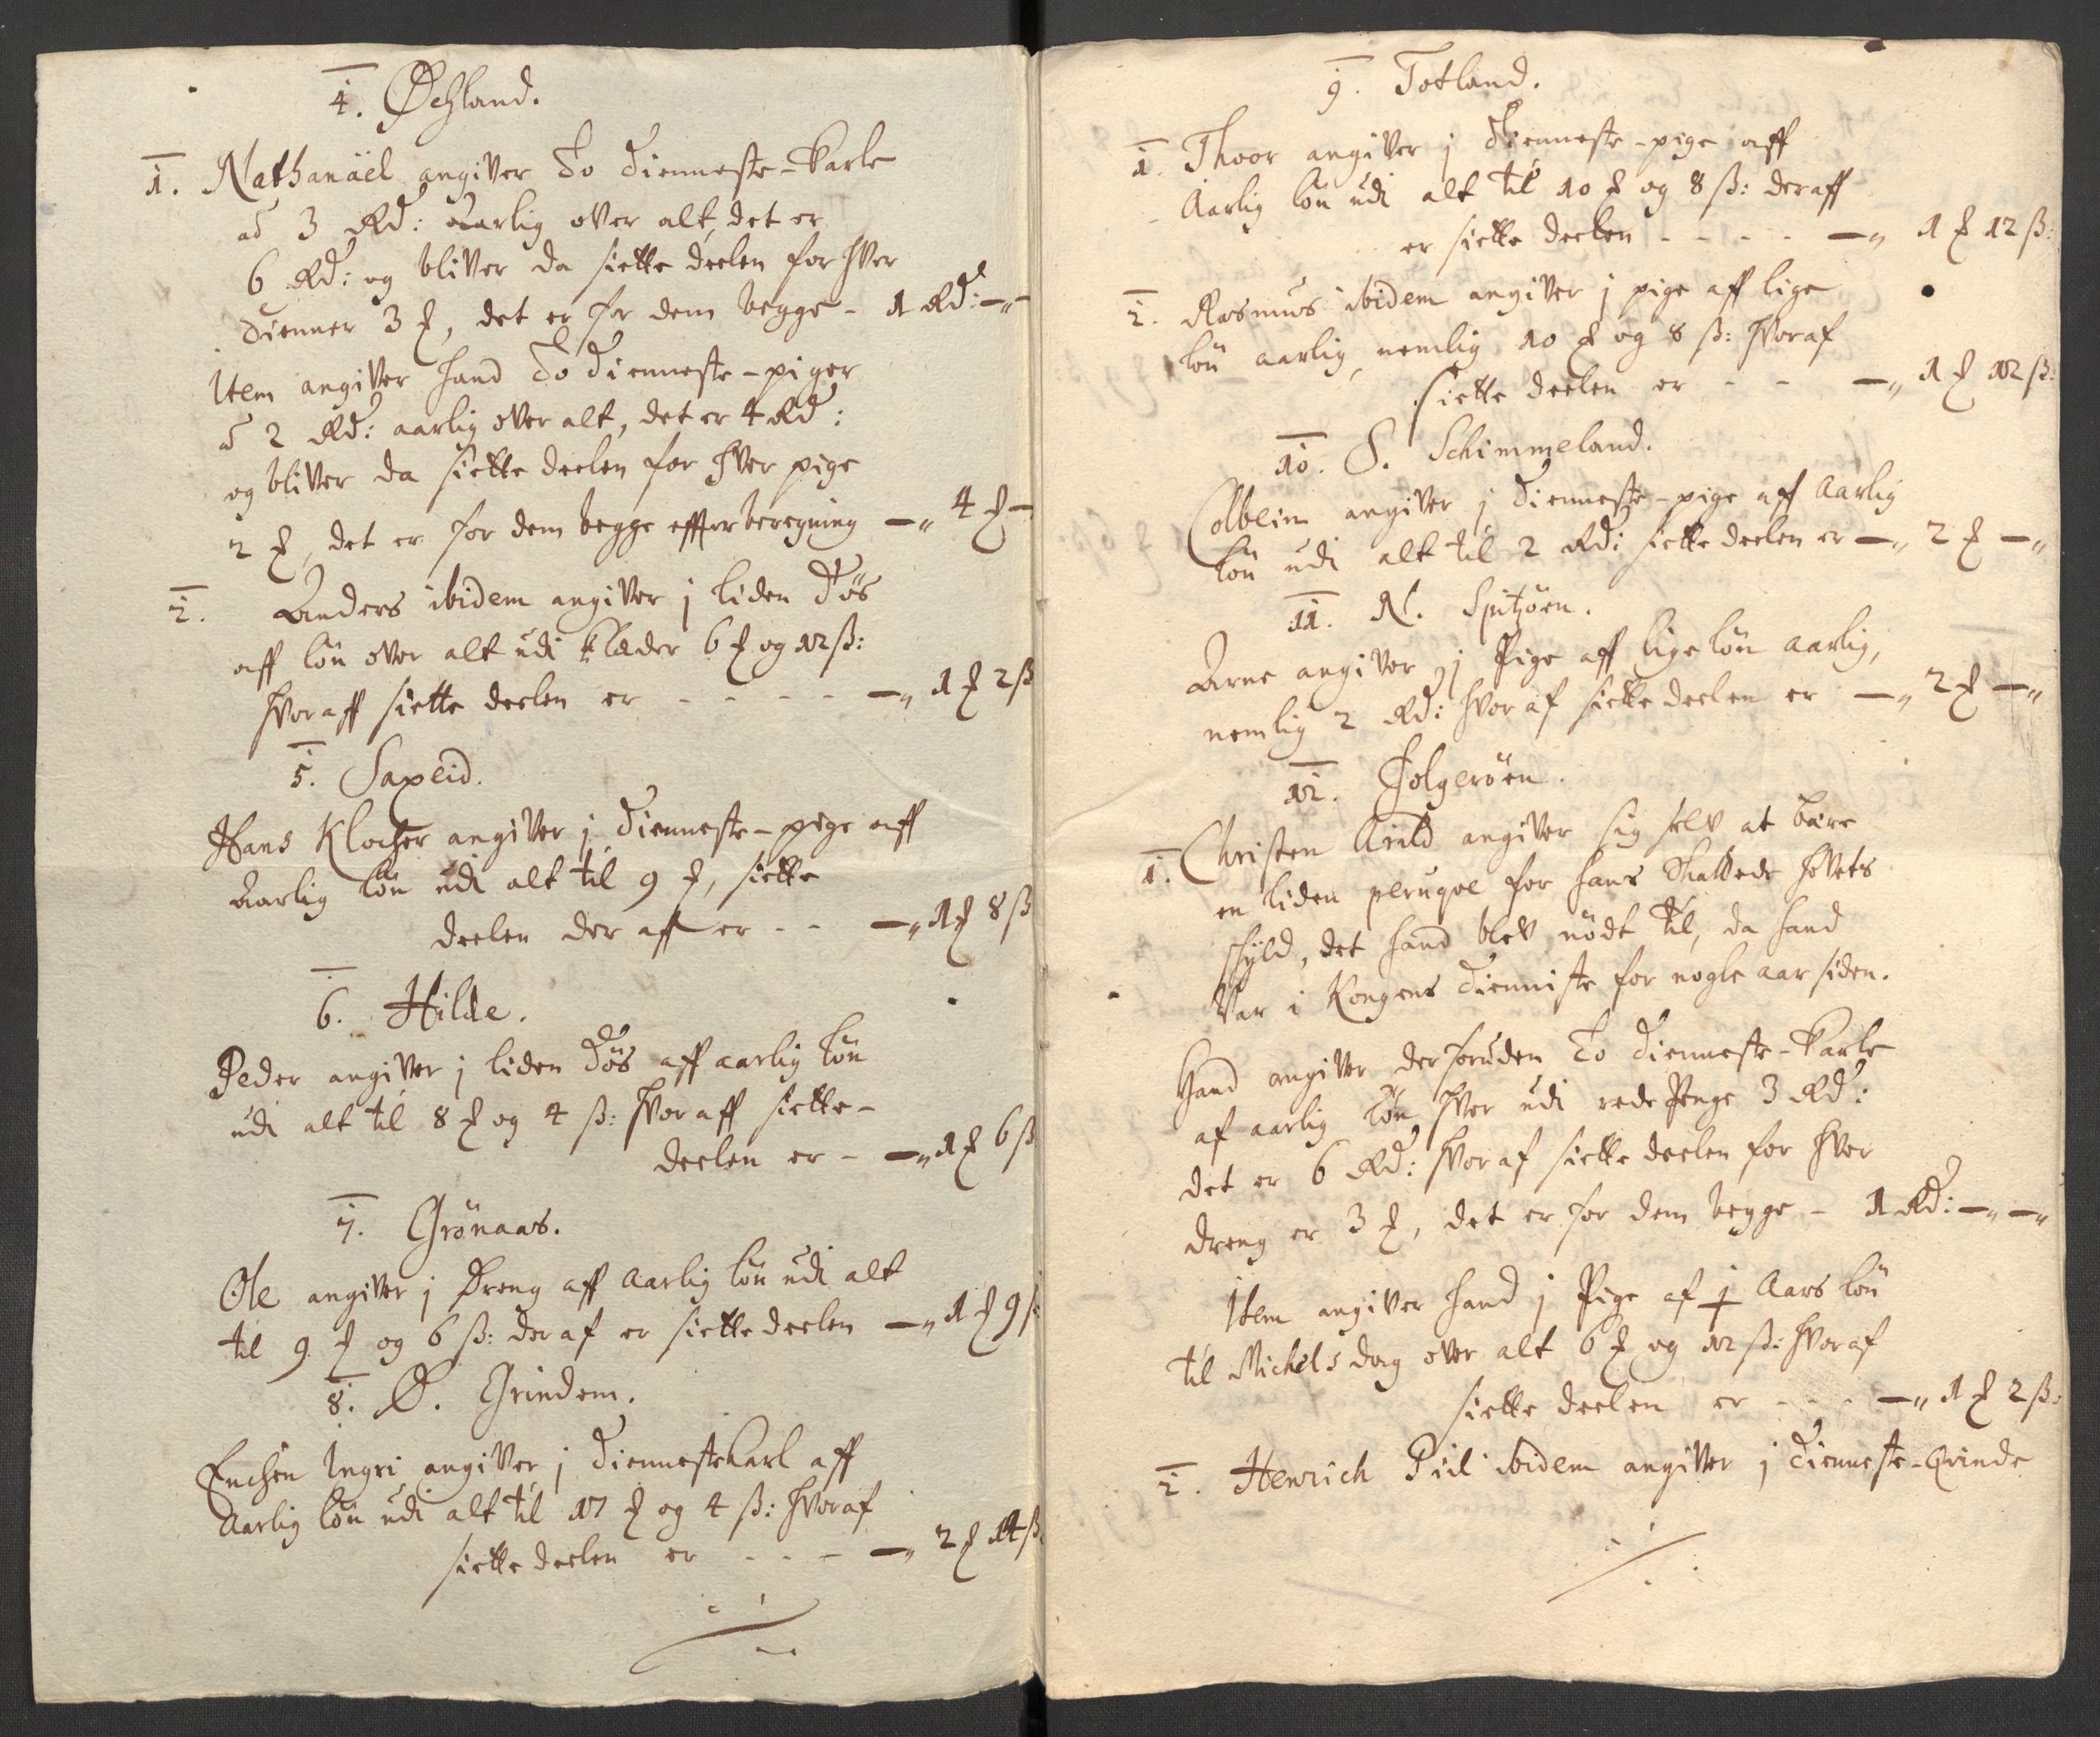 4. Øchland.
1. Nathanäel angiver to dienneste-Karle
ad 3 Rd: aarlig over alt, det er
6 Rd: og bliver da siette deelen for hver
dienner 3 ₰, det er for dem begge - 1 Rd: —„—
Item angiver hand to dienneste-piger
ad 2 Rd: aarlig over alt, det er 4 Rd:
og bliver da siette deelen for hver pige
2 ₰, det er for dem begge effter beregning —„ 4 ₰ —
2. Anders ibidem angiver j liden Tös
aff lön over alt udi klæder 6 ₰ og 12 ß:
hvoraff siette deelen er - - - - —„ 1 ₰ 2 ß
5. Saxeid.
Hans Klocker angiver j dienneste-pige aff
Aarlig lön udi alt til 9 ₰, siette
deelen der aff er - - —„ 1 ₰ 8 ß
6. Hilde.
Peder angiver j liden Tös aff aarlig lön
udi alt til 8 ₰ og 4 ß: hvoraff siette-
deelen er - —„ 1 ₰ 6 ß
7. Grönaas.
Ole angiver j Dreng aff Aarlig lön udi alt
til 9 ₰ og 6 ß: deraf er siette deelen —„ 1 ₰ 9 ß:
8. Ø. Grindem.
Enchen Ingri angiver j dienneste Karl aff
Aarlig lön udi alt til 17 ₰ og 4 ß: hvoraf
siette deelen er - - - —„ 2 ₰ 14 ß:
9. Totland.
1. Thoor angiver j dienneste-pige aff
Aarlig lön udi alt til 10 ₰ og 8 ß: deraff
er siette deelen - - - - —„ 1 ₰ 12 ß:
2. Rasmus ibidem angiver j pige aff lige
lön aarlig, nemlig 10 ₰ og 8 ß: hvoraf
siette deelen er - - —„ 1 ₰ 12 ß:
10. S. Schimmeland.
Colbein angiver j dienneste-pige aff Aarlig
lön udi alt til 2 Rd: siette deelen er —„ 2 ₰ —„
11. N. Spitzöen.
Arne angiver j Pige aff lige lön aarlig,
nemlig 2 Rd: hvoraf siette deelen er —„ 2 ₰ —„
12. Folgeröen.
1. Christen Arild angiver sig selv at bære
en liden perugve for hans Skallede hovets
skyld, det hand blev nödt til, da hand
var i Kongens dienniste for nogle aar siden.
Hand angiver der foruden to dienneste-Karle
af aarlig lön hver udi rede Penge 3 Rd:
det er 6 Rd: hvoraf siette deelen for hver
dreng er 3 ₰, det er for dem begge - 1 Rd: —„ —„
Item angiver hand j Pige af j Aars lön
til Michels dag over alt 6 ₰ og 12 ß: hvoraf
siette deelen er - - - —„ 1 ₰ 2 ß:
2. Henrich Piil ibidem angiver j dienneste-Qvinde